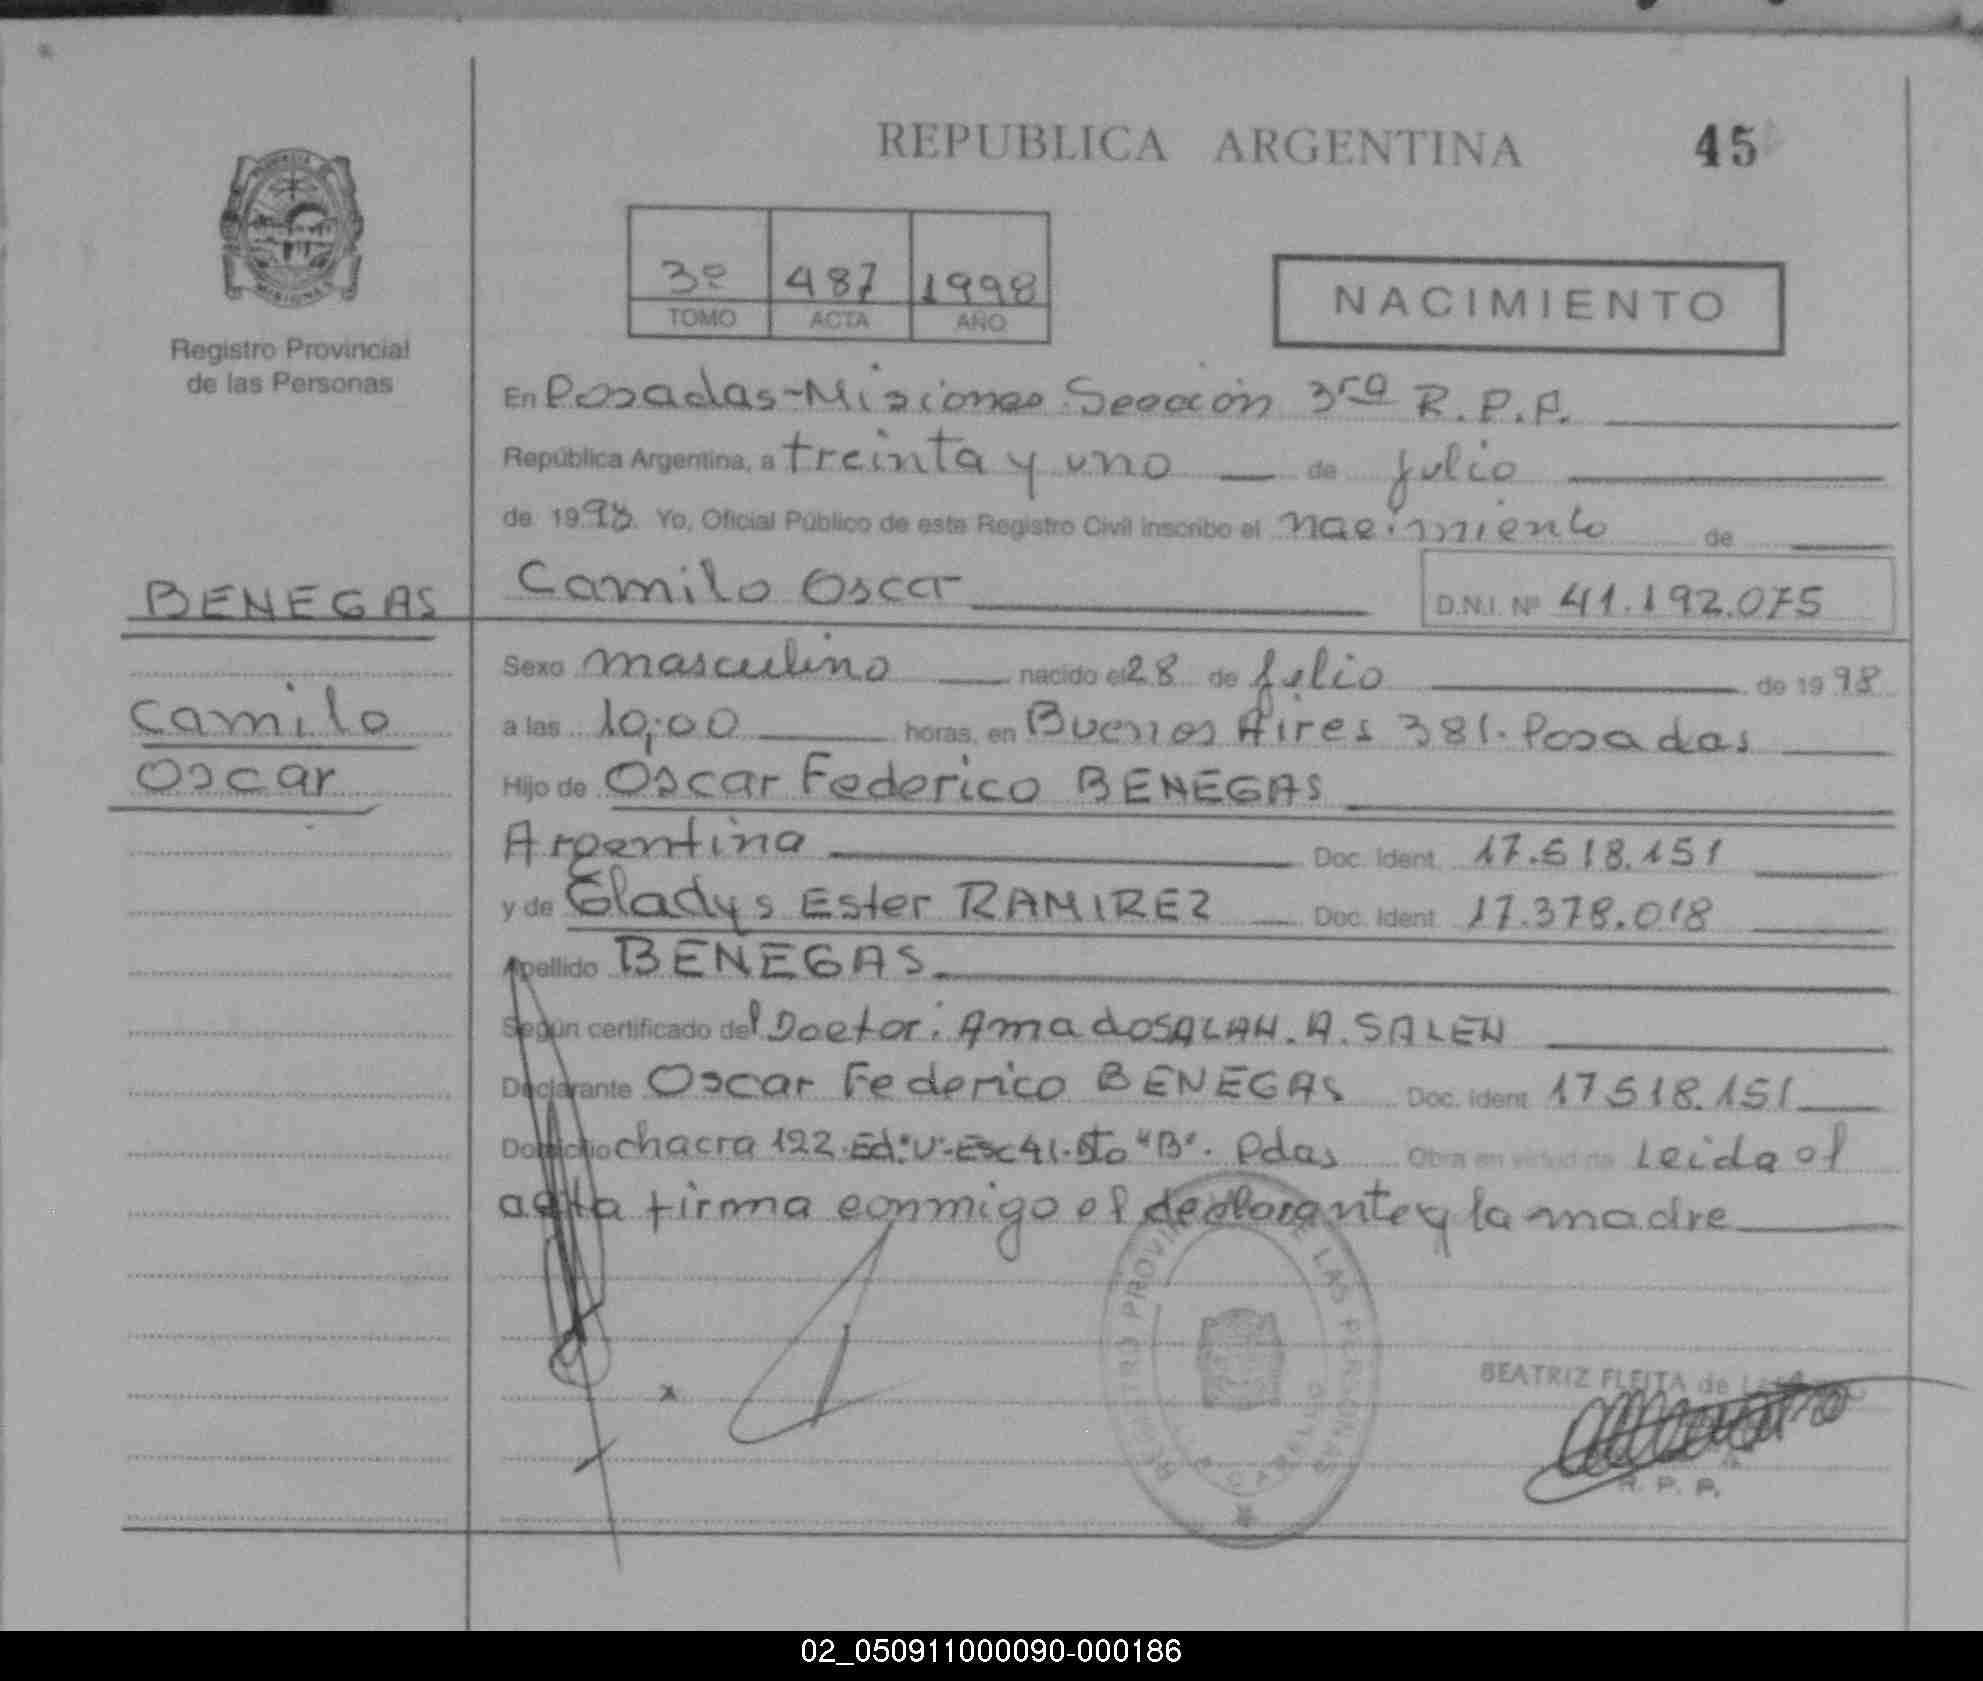 REPUBLICA ARGENTINA 45
3º 487 1998
TOMO ACTA AÑO
NACIMIENTO
Registro Provincial
de las Personas
En Posadas-Misiones Sección 3ra R.P.P.
República Argentina, a treinta y uno de julio
de 1998. Yo, Oficial Público de este Registro Civil inscribo el nacimiento de
BENEGAS
Camilo Oscar
D.N.I. Nº 41.192.075
Camilo
Oscar
Sexo masculino nacido el 28 de julio de 1998
a las 10:00 horas, en Buenos Aires 381. Posadas
Hijo de Oscar Federico BENEGAS
Argentina Doc. Ident. 17.518.151
y de Gladys Ester RAMIREZ Doc. Ident. 17.378.018
Apellido BENEGAS
Según certificado del Doctor: Amado SALAH. A. SALEN
Declarante Oscar Federico BENEGAS Doc. Ident. 17518.151
Domicilio chacra 122. Ed."U"-Esc 41. Dto "B". Pdas Obra en virtud de Leida el
acta firma conmigo el declarante y la madre
REGISTRO PROVINCIAL DE LAS PERSONAS
BEATRIZ FLEITA de
R. P. P.
02_050911000090-000186